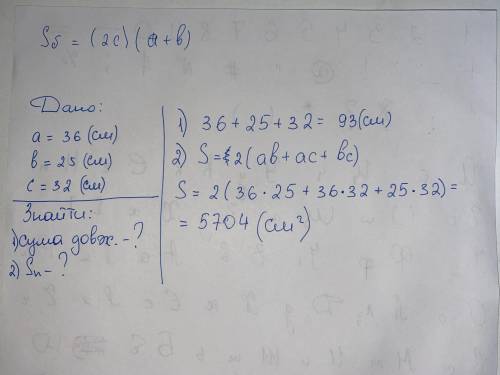 Sб = (2c) (a+b)
Дано:
a = 36 (см)
b = 25 (см)
c = 32 (см)
Знайти:
1) сума довж. - ?
2) Sп - ?
1) 36 + 25 + 32 = 93 (см)
2) S = 2 (ab + ac + bc)
S = 2 (36 · 25 + 36 · 32 + 25 · 32) =
= 5704 (см²)